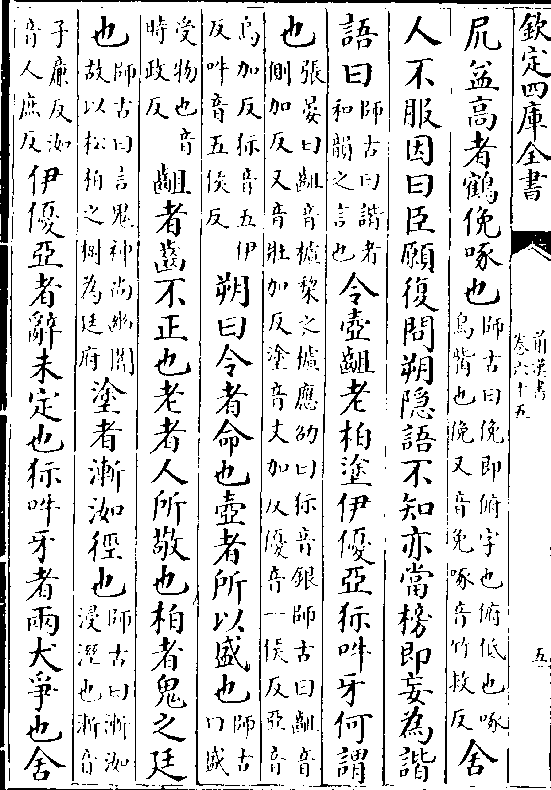 欽定四庫全書
前漢書
卷六十五
五
尻益高者鶴俛啄也師古曰俛即俯字也俯低也啄鳥觜也俛又音免啄音竹救反舍
人不服因曰臣願復問朔隠語不知亦當榜即妄為諧
語曰師古曰諧者和韻之言也令壺齟老柏塗伊優亞狋吽牙何謂
也張晏曰齟音樝棃之樝應劭曰狋音銀師古曰齟音側加反又音壯加反塗音丈加反優音一侯反亞音
烏加反狋音五伊反吽音五侯反朔曰令者命也壺者所以盛也師古曰盛
受物也音時政反齟者齒不正也老者人所敬也柏者鬼之廷
也師古曰言鬼神尚幽闇故以松柏之樹為廷府塗者漸洳徑也師古曰漸洳浸溼也漸音
子廉反洳音人庶反伊優亞者辭未定也狋吽牙者兩犬爭也舍